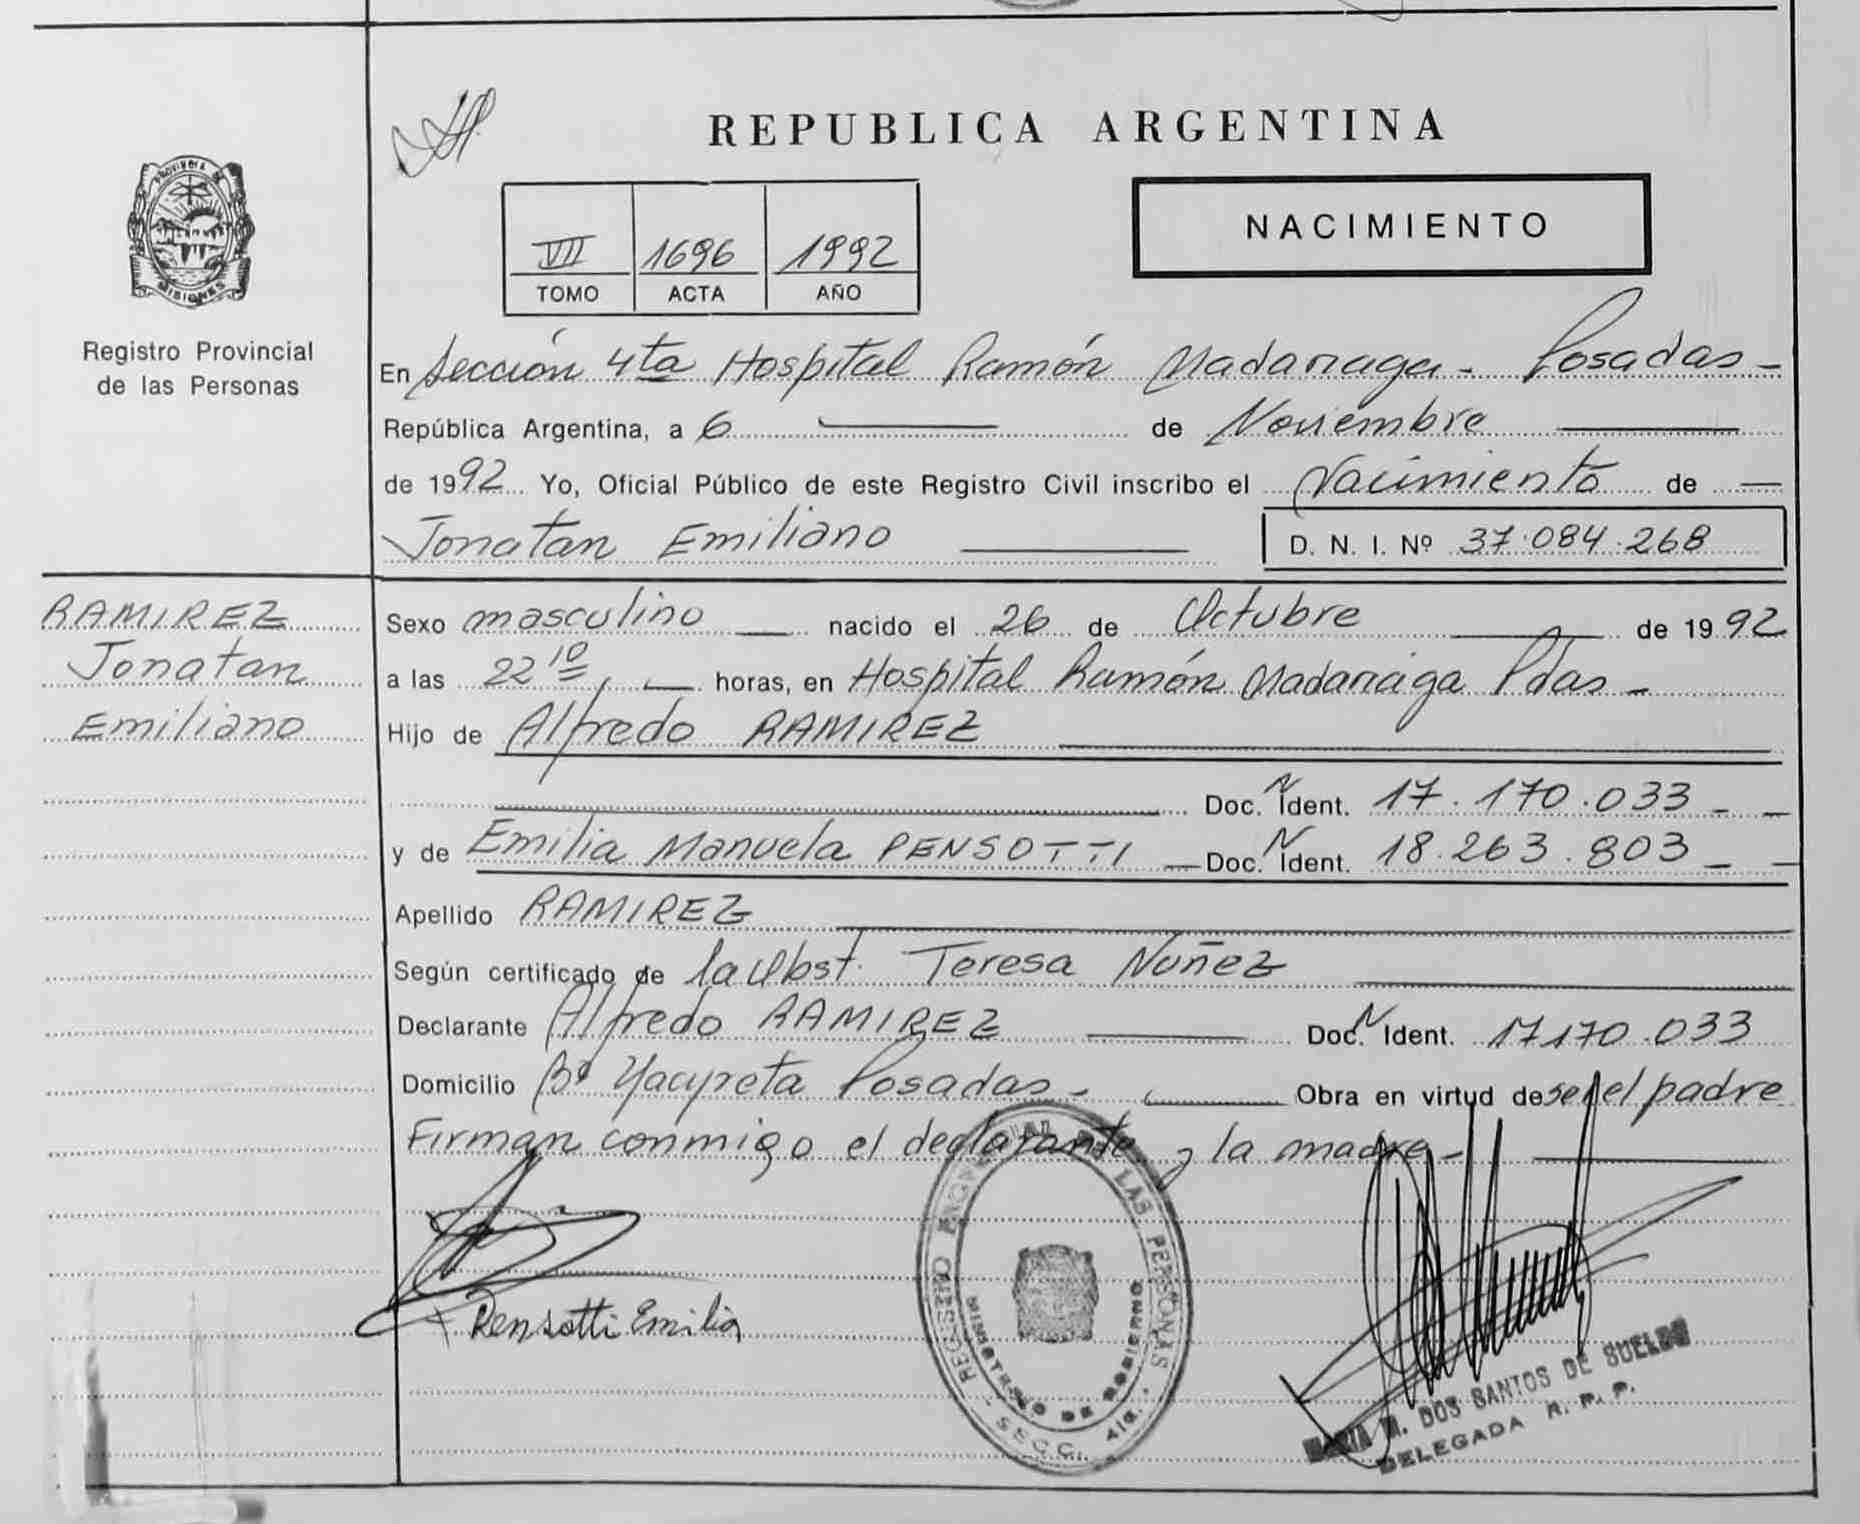 REPUBLICA ARGENTINA
PROVINCIA DE
MISIONES
Registro Provincial
de las Personas
VII 1696 1992
TOMO ACTA AÑO
NACIMIENTO
En Sección 4ta Hospital Ramón Madariaga - Posadas -
República Argentina, a 6 de Noviembre
de 1992 Yo, Oficial Público de este Registro Civil inscribo el Nacimiento de
Jonatan Emiliano
D. N. I. Nº 37.084.268
RAMIREZ
Jonatan
Emiliano
Sexo masculino nacido el 26 de Octubre de 1992
a las 22 10 horas, en Hospital Ramón Madariaga Pdas -
Hijo de Alfredo RAMIREZ
Doc. N Ident. 17.170.033 -
y de Emilia Manuela PENSOTTI - Doc. N Ident. 18.263.803 -
Apellido RAMIREZ
Según certificado de la Obst. Teresa Nuñez
Declarante Alfredo RAMIREZ Doc. N Ident. 17170.033
Domicilio Bº Yacyreta Posadas - Obra en virtud de ser el padre
Firman conmigo el declarante y la madre -
Pensotti Emilia
REGISTRO PROVINCIAL DE LAS PERSONAS
MINISTERIO DE GOBIERNO
SECC. 4ta.
MARIA M. DOS SANTOS DE SUELDO
DELEGADA R. P. P.